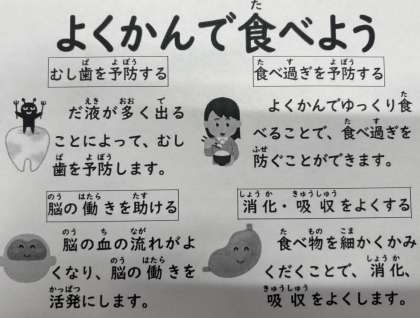 よくかんで食べよう
むし歯を予防する
だ液が多く出る
ことによって、むし
歯を予防します。
食べ過ぎを予防する
よくかんでゆっくり食
べることで、食べ過ぎを
防ぐことができます。
脳の働きを助ける
脳の血の流れがよ
くなり、脳の働きを
活発にします。
消化・吸収をよくする
食べ物を細かくかみ
くだくことで、消化、
吸収をよくします。